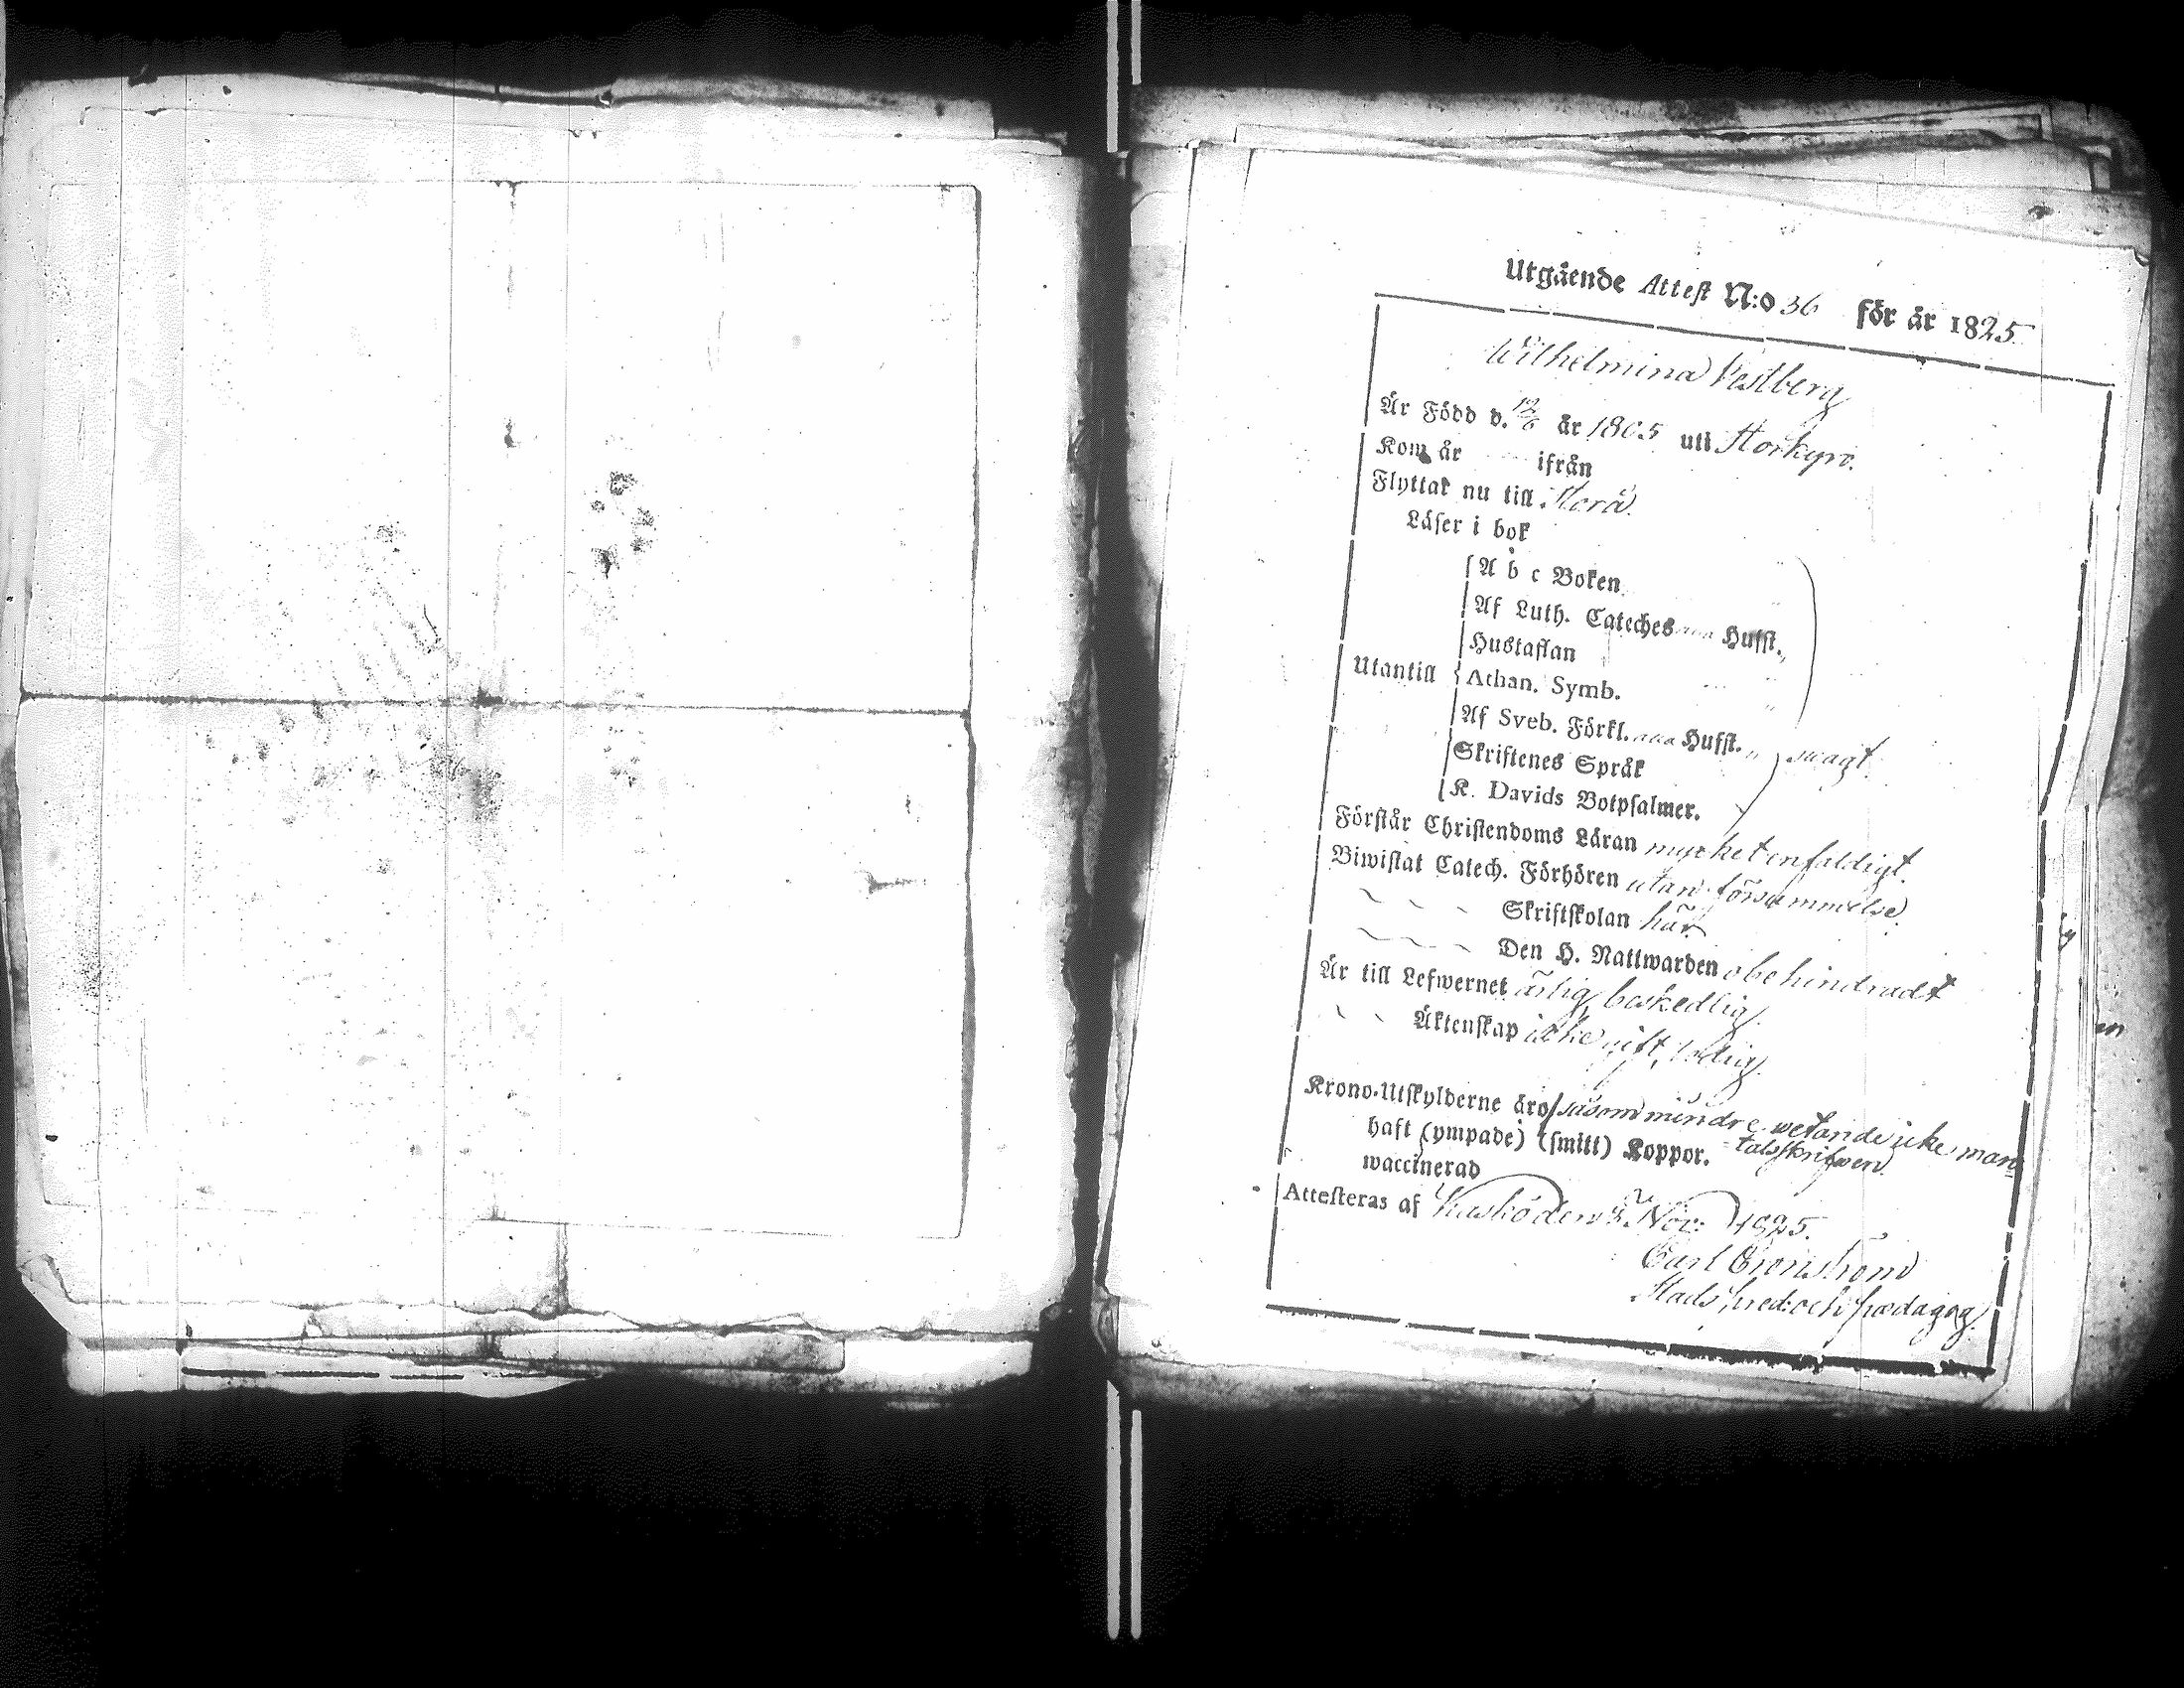 Utgående Attest N:o 36 för år 1825
Wilhelmina Vestberg
Är Född d. 12/6 år 1805 uti Storkyro.
Kom år ifrån
Flyttar nu till
Läser i bok
A b c Boken
Af Luth. Cateches Hufst.
Hustaflan
Utantill Athan. Symb.
Af Sveb. Förkl. Hufst. swagt
Skriftenes Språk
K. Davids Botpsalmer.
Förstår Christendoms Läran mycket enfaldigt.
Biwistat Catech. Förhören utan försummelse.
Skriftskolan här
Den H. Nattwarden obehindradt
Är till Lefwernet ärlig, beskedlig
Äktenskap icke gift, ledig
Krono-Utskylderne äro såsom mindre wetande icke man
haft (ympade) (smitt) Koppor. talsskrifwen
waccinerad
Attesteras af Kaskö den Nov: 1825.
Carl
Stads pred: och pædagog.